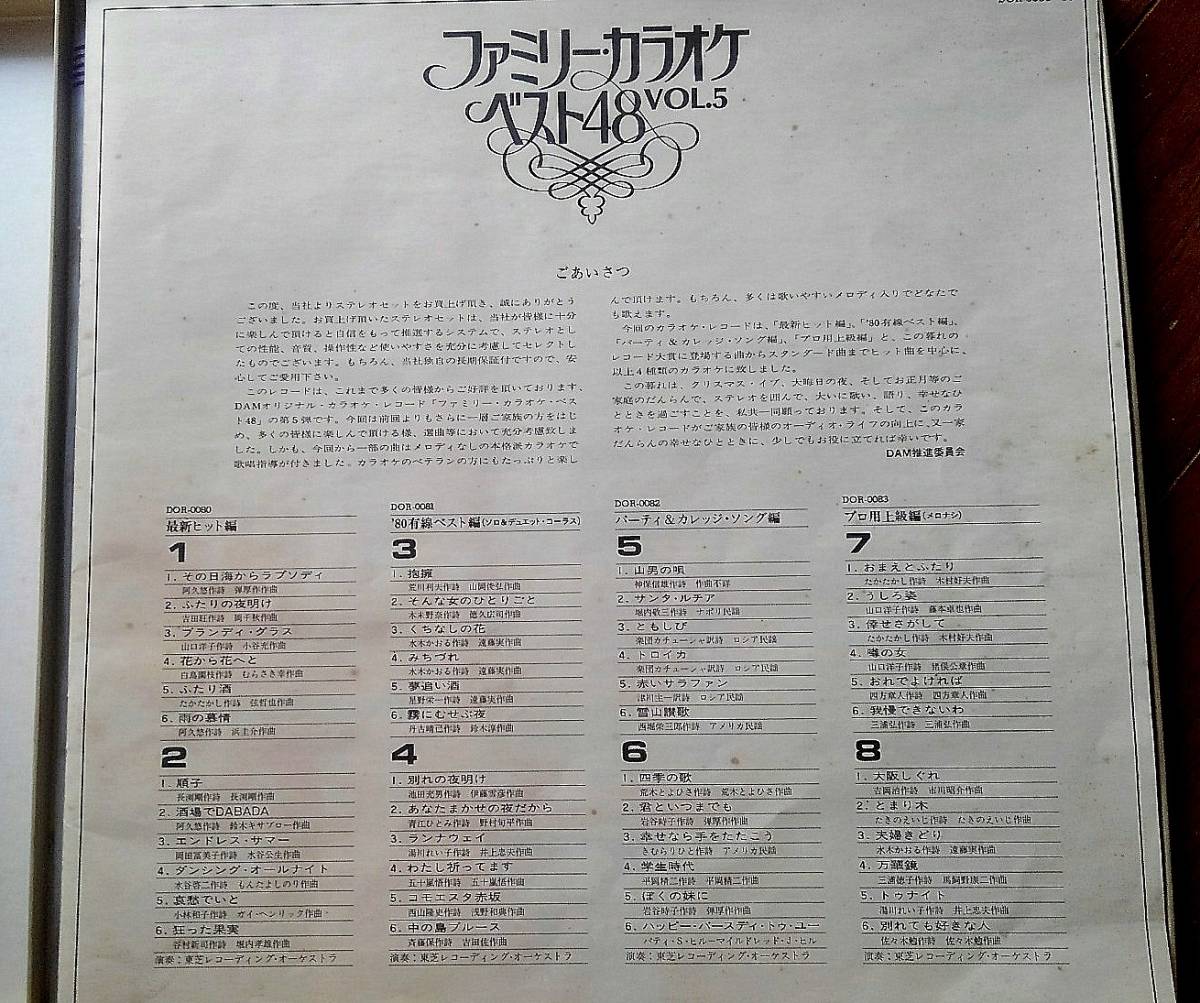 ファミリー・カラオケ
ベスト48 VOL.5
ごあいさつ
この度、当社よりステレオセットをお買上げ頂き、誠にありがとう
ございました。お買上げ頂いたステレオセットは、当社が皆様に十分
に楽しんで頂けると自信をもって推選するシステムで、ステレオとし
ての性能、音質、操作性など使いやすさを充分に考慮してセレクトし
たものでございます。もちろん、当社独自の長期保証付ですので、安
心してご愛用下さい。
このレコードは、これまで多くの皆様からご好評を頂いております、
DAMオリジナル・カラオケ・レコード「ファミリー・カラオケ・ベス
ト48」の第5弾です。今回は前回よりもさらに一層ご家族の方をはじ
め、多くの皆様に楽しんで頂ける様、選曲等において充分考慮致しま
した。しかも、今回から一部の曲はメロディなしの本格派カラオケで
歌唱指導が付きました。カラオケのベテランの方にもたっぷりと楽し
んで頂けます。もちろん、多くは歌いやすいメロディ入りでどなたで
も歌えます。
今回のカラオケ・レコードは、「最新ヒット編」、「'80有線ベスト編」、
「パーティ&カレッジ・ソング編」、「プロ用上級編」と、この暮れの
レコード大賞に登場する曲からスタンダード曲までヒット曲を中心に、
以上4種類のカラオケに致しました。
この暮れは、クリスマス・イブ、大晦日の夜、そしてお正月等のご
家庭のだんらんで、ステレオを囲んで、大いに歌い、語り、幸せなひ
とときを過ごすことを、私共一同願っております。そして、このカラ
オケ・レコードがご家族の皆様のオーディオ・ライフの向上に、又一家
だんらんの幸せなひとときに、少しでもお役に立てれば幸いです。
DAM推進委員会
DOR-0080
最新ヒット編
1
1. その日海からラプソディ
阿久悠作詩 弾厚作作曲
2. ふたりの夜明け
吉田旺作詩 岡千秋作曲
3. ブランディ・グラス
山口洋子作詩 小谷充作曲
4. 花から花へと
白鳥園枝作詩 むらさき幸作曲
5. ふたり酒
たかたかし作詩 弦哲也作曲
6. 雨の慕情
阿久悠作詩 浜圭介作曲
2
1. 順子
長渕剛作詩 長渕剛作曲
2. 酒場でDABADA
阿久悠作詩 鈴木キサブロー作曲
3. エンドレス・サマー
岡田冨美子作詩 水谷公生作曲
4. ダンシング・オールナイト
水谷啓二作詩 もんたよしのり作曲
5. 哀愁でいと
小林和子作詩 ガイ・ヘンリック作曲
6. 狂った果実
谷村新司作詩 堀内孝雄作曲
演奏：東芝レコーディング・オーケストラ
DOR-0081
'80有線ベスト編(ソロ&デュエット・コーラス)
3
1. 抱擁
荒川利夫作詩 山岡俊弘作曲
2. そんな女のひとりごと
木未野奈作詩 徳久広司作曲
3. くちなしの花
水木かおる作詩 遠藤実作曲
4. みちづれ
水木かおる作詩 遠藤実作曲
5. 夢追い酒
星野栄一作詩 遠藤実作曲
6. 霧にむせぶ夜
丹古晴己作詩 鈴木淳作曲
4
1. 別れの夜明け
池田充男作詩 伊藤雪彦作曲
2. あなたまかせの夜だから
青江ひとみ作詩 野村旬平作曲
3. ランナウェイ
湯川れい子作詩 井上忠夫作曲
4. わたし祈ってます
五十嵐悟作詩 五十嵐悟作曲
5. コモエスタ赤坂
西山隆史作詩 浅野和典作曲
6. 中の島ブルース
斉藤保作詩 吉田佐作曲
演奏：東芝レコーディング・オーケストラ
DOR-0082
パーティ&カレッジ・ソング編
5
1. 山男の唄
神保信雄作詩 作曲不詳
2. サンタ・ルチア
堀内敬三作詩 ナポリ民謡
3. ともしび
楽団カチューシャ訳詩 ロシア民謡
4. トロイカ
楽団カチューシャ訳詩 ロシア民謡
5. 赤いサラファン
津川主一訳詩 ロシア民謡
6. 雪山讃歌
西堀栄三郎作詩 アメリカ民謡
6
1. 四季の歌
荒木とよひさ作詩 荒木とよひさ作曲
2. 君といつまでも
岩谷時子作詩 弾厚作作曲
3. 幸せなら手をたたこう
きむらりひと作詩 アメリカ民謡
4. 学生時代
平岡精二作詩 平岡精二作曲
5. ぼくの妹に
岩谷時子作詩 弾厚作作曲
6. ハッピー・バースディ・トゥ・ユー
パティ・S・ヒル－マイルドレッド・J・ヒル
演奏：東芝レコーディング・オーケストラ
DOR-0083
プロ用上級編(メロナシ)
7
1. おまえとふたり
たかたかし作詩 木村好夫作曲
2. うしろ姿
山口洋子作詩 藤本卓也作曲
3. 倖せさがして
たかたかし作詩 木村好夫作曲
4. 噂の女
山口洋子作詩 猪俣公章作曲
5. おれでよければ
四方章人作詩 四方章人作曲
6. 我慢できないわ
三浦弘作詩 三浦弘作曲
8
1. 大阪しぐれ
吉岡治作詩 市川昭介作曲
2. とまり木
たきのえいじ作詩 たきのえいじ作曲
3. 夫婦きどり
水木かおる作詩 遠藤実作曲
4. 万華鏡
三浦徳子作詩 馬飼野康二作曲
5. トゥナイト
湯川れい子作詩 井上忠夫作曲
6. 別れても好きな人
佐々木勉作詩 佐々木勉作曲
演奏：東芝レコーディング・オーケストラ